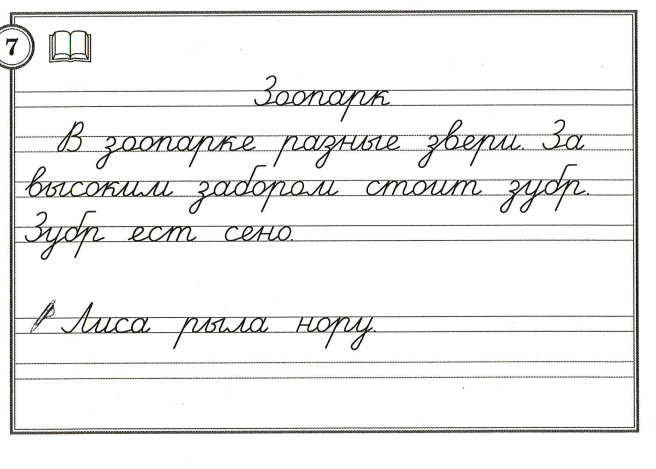 7
Зоопарк
В зоопарке разные звери. За
высоким забором стоит зубр.
Зубр ест сено.
Лиса рыла нору.